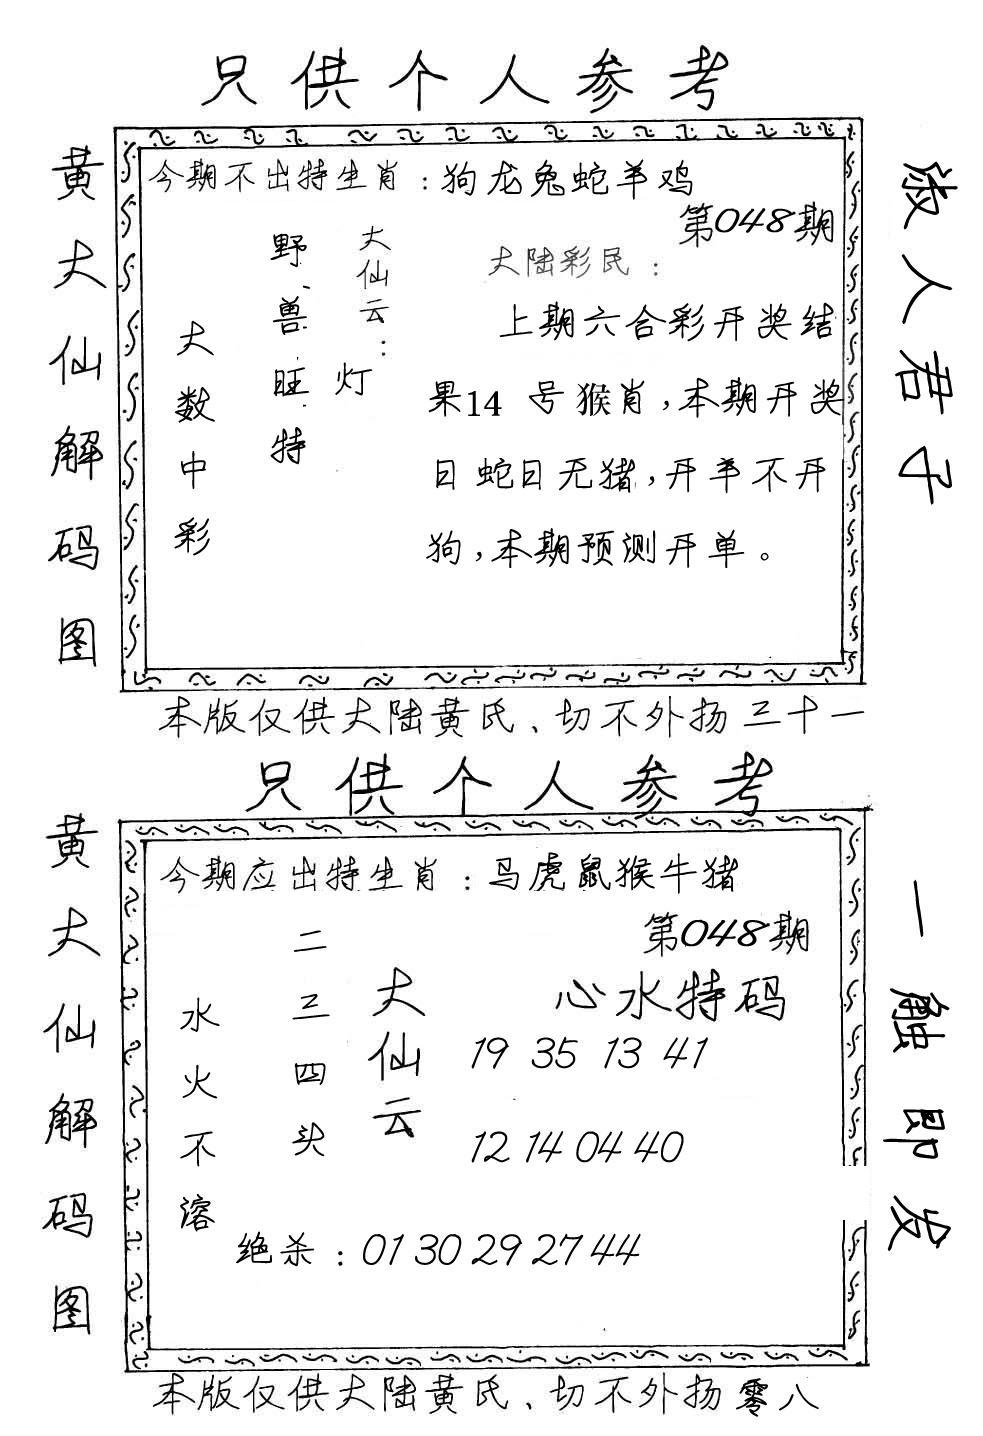 只供个人参考
黄大仙解码图
今期不出特生肖：狗龙兔蛇羊鸡
第048期
大仙云：
灯
野兽旺特
大数中彩
大陆彩民：
上期六合彩开奖结
果14 号猴肖，本期开奖
日蛇日无猪，开羊不开
狗，本期预测开单。
淑人君子
本版仅供大陆黄氏、切不外扬三十一
只供个人参考
黄大仙解码图
今期应出特生肖：马虎鼠猴牛猪
第048期
大仙云
二三四头
水火不溶
心水特码
19 35 13 41
12 14 04 40
绝杀：01 30 29 27 44
一触即发
本版仅供大陆黄氏、切不外扬零八